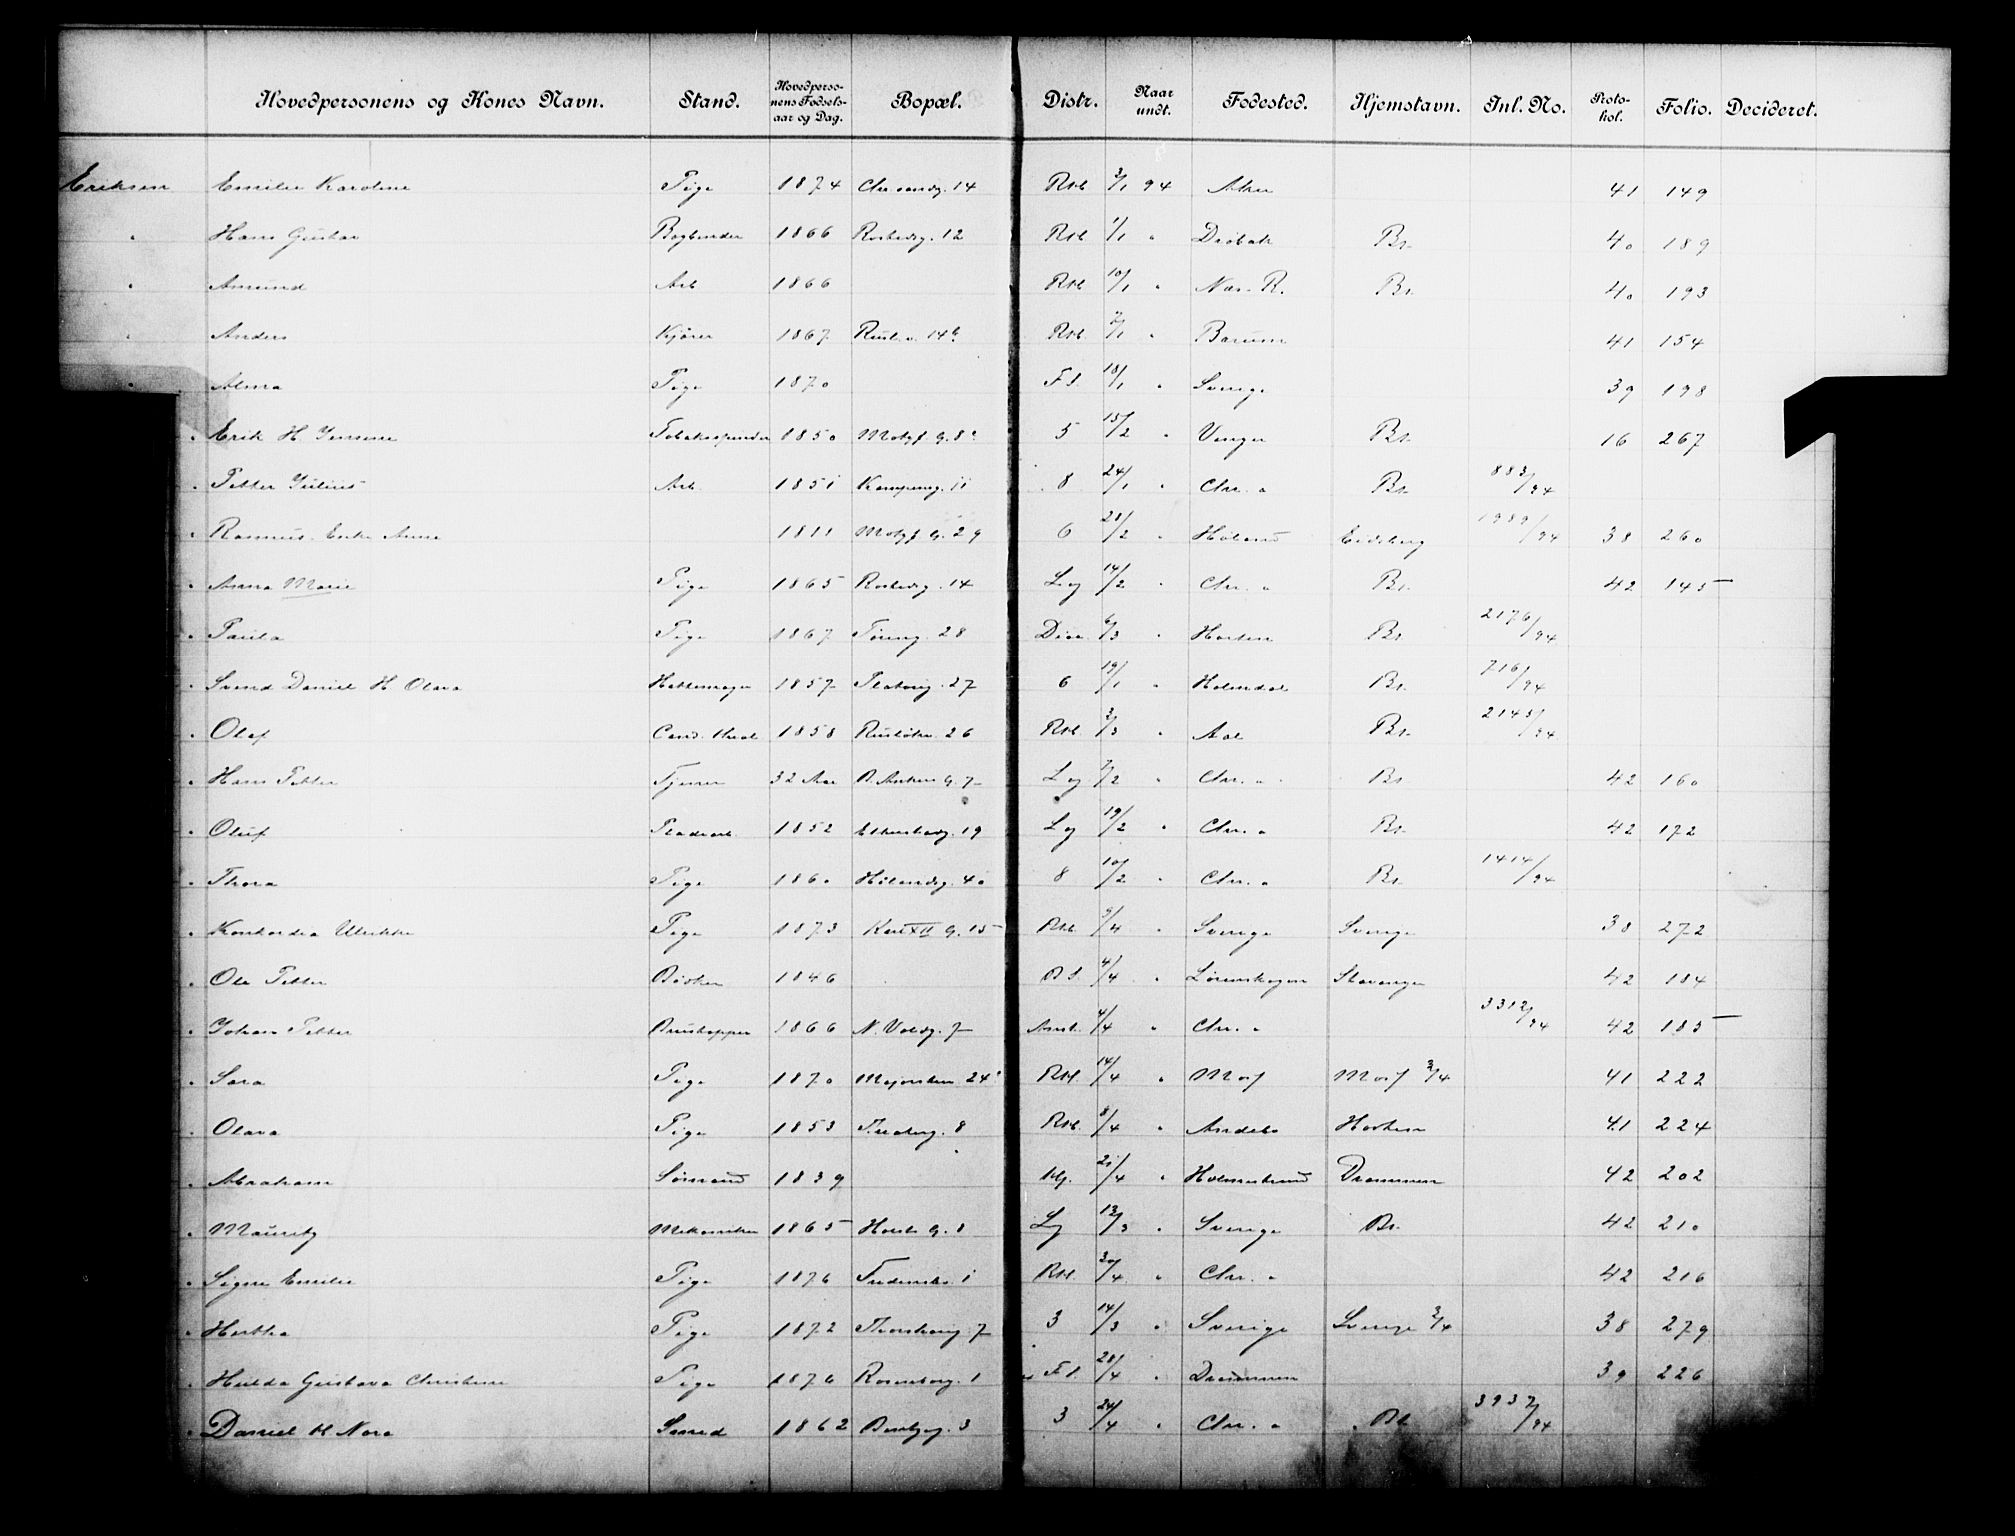 Hovedpersonens og Kones Navn. Stand. Hovedpersonens Fødselsaar og Dag. Bopæl. Distr. Naar undt. Fødested. Hjemstavn. Inl. No. Protokol. Folio. Decideret.
Eriksen Emilie Karoline Pige 1874 Chr.sandg. 14 Rst. 3/1 94 Aker 41 149
" Hans Gustav Bogbinder 1866 12 Rst. 1/1 " Drøbak Br. 40 189
" Amund Arb. 1866 Rst. 10/1 " Næs. R. Br. 40 193
" Anders Kjører 1867 14 Rst. 2/1 " Bærum 41 154
" Alma Pige 1870 F.s. 18/1 " Sverige 39 198
" Erik H. Jensine Tobakspinder 1850 Motzf. G. 8 5 15/2 " Br. 16 267
" Petter Julius Arb. 1851 Kampeng. 11 8 24/1 " Chr. a Br. 883/94
" Rasmus. Enke Anne 1811 Motzf. G. 29 6 28/2 " Høland Eidsberg 1989/94 38 260
" Anna Marie Pige 1865 14 Lg 14/2 " Chr. a Br. 42 145
" Paula Pige 1867 28 6/3 " Horten Br. 2176/94
" Svend Daniel H. Olava Hattemager 1857 27 6 19/1 " Br. 716/94
" Olaf Cand. theol. 1858 Ruseløkv. 26 Rst. 3/3 " Aal Br. 2145/94
" Hans Petter Tjener 32 Aar B. Ankers G. 7 Lg 7/2 " Chr. a Br. 42 160
" Oluf Pladearb. 1852 19 Lg 19/2 " Chr. a Br. 42 172
" Thora Pige 1860 Hølandsg. 40 8 10/2 " Chr. a Br. 1414/94
" Konkordia Ulrikke Pige 1873 Karl XII G. 15 Rst. 5/4 " Sverige Sverige 38 272
" Ole Petter Bødker 1846 B.s. 4/4 " Lørenskogen Stavanger 42 184
" Johan Petter 1866 N. Voldg. 7 Anst. 4/4 " Chr. a 3312/94 42 185
" Sara Pige 1870 Majorstuv. 24 Rst. 14/4 " Moss Moss 3/4 41 222
" Olava Pige 1853 Theaterg. 8 Rst. 8/4 " Andebo Horten 41 224
" Abraham Sømand 1839 21/4 " Holmestrand Drammen 42 202
" Mauritz Mekaniker 1865 Holst G. 8 Lg 12/3 " Sverige Br. 42 210
" Signe Emilie Pige 1876 1 Rst. 30/4 " Chr. a 42 216
" Hertha Pige 1872 7 3 14/3 " Sverige Sverige 3/4 38 279
" Hulda Gustava Christine Pige 1876 Rosenborg. 1 F.s. 28/4 " Drammen 39 226
" Daniel H. Nora Smed 1862 3 3 24/4 " Chr. a Br. 3937/94